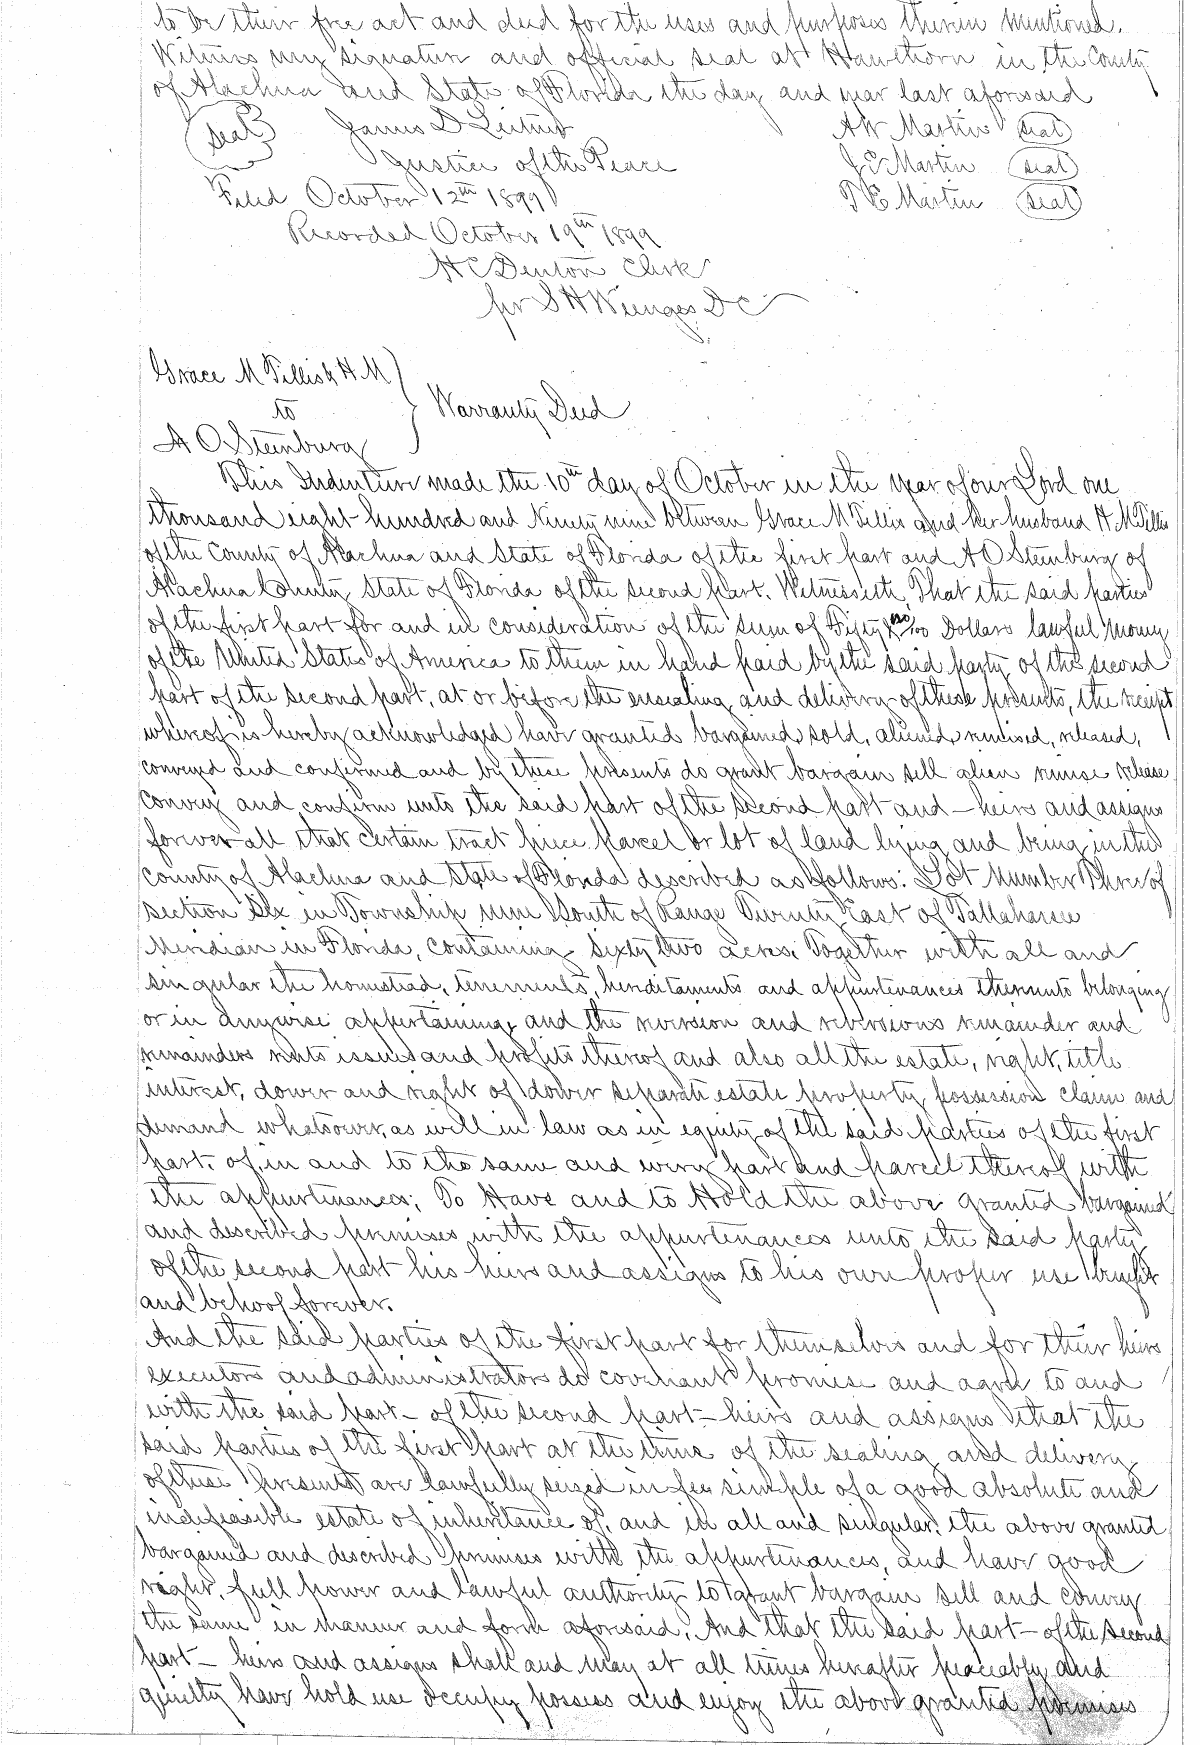 to be their free act and deed for the uses and purposes therein mentioned.
Witness my signature and official seal at Hawthorn in the County
of Alachua and State of Florida the day and year last aforesaid
seal James D A W Martin seal
Justice of the Peace J E Martin seal
Filed October 12th 1899 T E Martin seal
Recorded October 19th 1899
H C Denton Clerk
per S H Wienges D C
Grace M Tillis & H M
to Warranty Deed
A O Steenburg
This Indenture made the 10th day of October in the year of our Lord one
thousand eight hundred and Ninety nine between Grace M Tillis and her husband H M Tillis
of the County of Alachua and State of Florida of the first part and A O Steenburg of
Alachua County State of Florida of the second part. Witnesseth, That the said parties
of the first part for and in consideration of the sum of Fifty & no/100 Dollars lawful money
of the United States of America to them in hand paid by the said party of the second
part of the second part, at or before the ensealing and delivery of these presents, the receipt
whereof is hereby acknowledged have granted bargained, sold, aliened, remised, released,
conveyed and confirmed and by these presents do grant bargain sell alien remise release
convey and confirm unto the said part of the second part and — heirs and assigns
forever all that certain tract piece parcel or lot of land lying and being in the
County of Alachua and State of Florida described as follows: Lot Number Three of
section Six in Township nine South of Range Twenty East of Tallahassee
Meridian in Florida, containing sixty two acres; Together with all and
singular the homestead, tenements, hereditaments and appurtenances thereunto belonging
or in anywise appertaining, and the reversion and reversions remainder and
remainders rents issues and profits thereof and also all the estate, right, title
interest, dower and right of dower separate estate property possession claim and
demand whatsoever, as well in law as in equity of the said parties of the first
part, of, in and to the same and every part and parcel thereof with
the appurtenances; To Have and to Hold the above granted bargained
and described premises with the appurtenances unto the said party
of the second part his heirs and assigns to his own proper use benefit
and behoof forever.
And the said parties of the first part for themselves and for their heirs
executors and administrators do covenant promise and agree to and
with the said part — of the second part — heirs and assigns that the
said parties of the first part at the time of the sealing and delivery
of these presents are lawfully seized in fee simple of a good absolute and
indefeasible estate of inheritance of, and in all and singular, the above granted
bargained and described premises with the appurtenances, and have good
right, full power and lawful authority to grant bargain sell and convey
the same in manner and form aforesaid. And that the said part — of the second
part — heirs and assigns shall and may at all times hereafter peaceably and
quietly have hold use occupy possess and enjoy the above granted premises